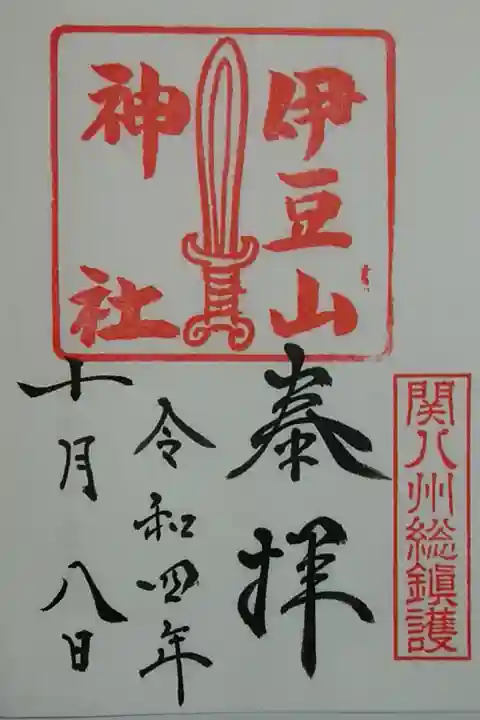 伊豆山
神社
奉拝
令和四年
十月八日
関八州総鎮護